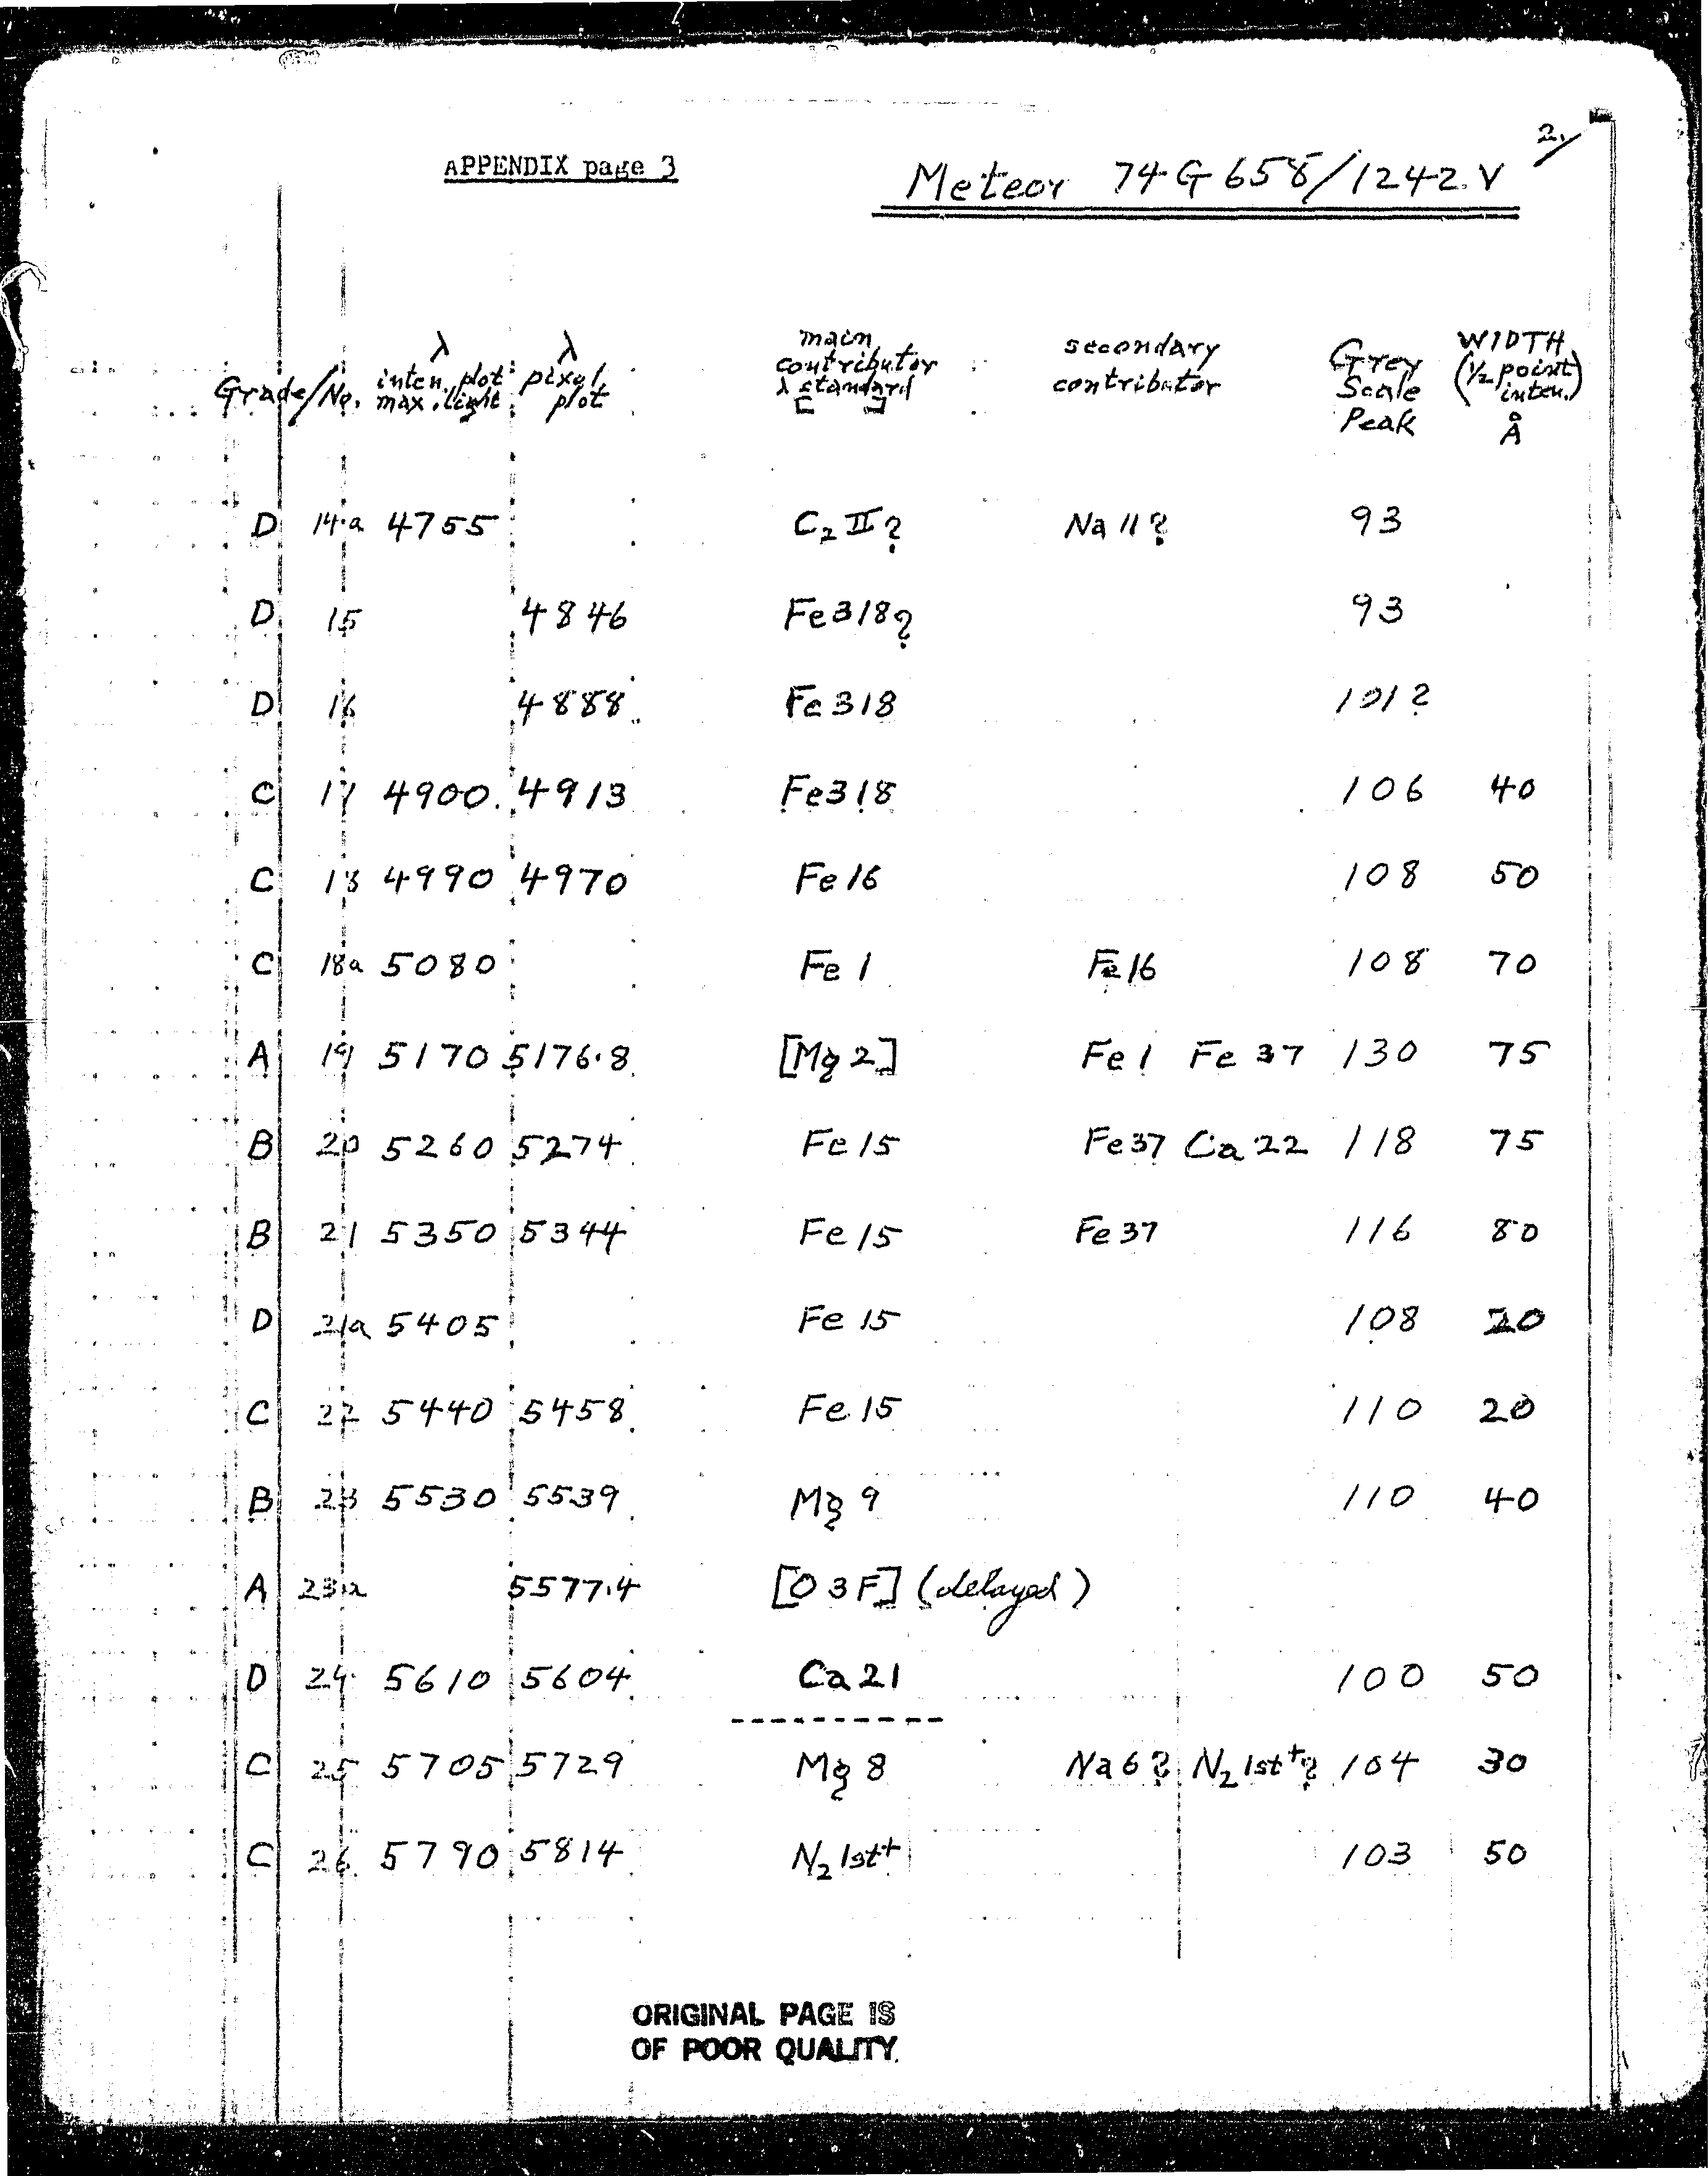 2.
APPENDIX page 3
Meteor 74G658/1242.V
Grade/No. λ inten. plot max. light λ pixel plot main contributor λ standard [ ] secondary contributor Grey Scale Peak WIDTH (½ point inten.) Å
D 14a 4755 C₂ II? Na 11? 93
D 15 4846 Fe 318? 93
D 16 4888 Fe 318 101?
C 17 4900 4913 Fe 318 106 40
C 18 4990 4970 Fe 16 108 50
C 18a 5080 Fe 1 Fe 16 108 70
A 19 5170 5176.8 [Mg 2] Fe 1 Fe 37 130 75
B 20 5260 5274 Fe 15 Fe 37 Ca 22 118 75
B 21 5350 5344 Fe 15 Fe 37 116 80
D 21a 5405 Fe 15 108 20
C 22 5440 5458 Fe 15 110 20
B 23 5530 5539 Mg 9 110 40
A 23a 5577.4 [O 3F] (delayed)
D 24 5610 5604 Ca 21 100 50
C 25 5705 5729 Mg 8 Na 6? N₂ 1st⁺? 104 30
C 26 5790 5814 N₂ 1st⁺ 103 50
ORIGINAL PAGE IS
OF POOR QUALITY